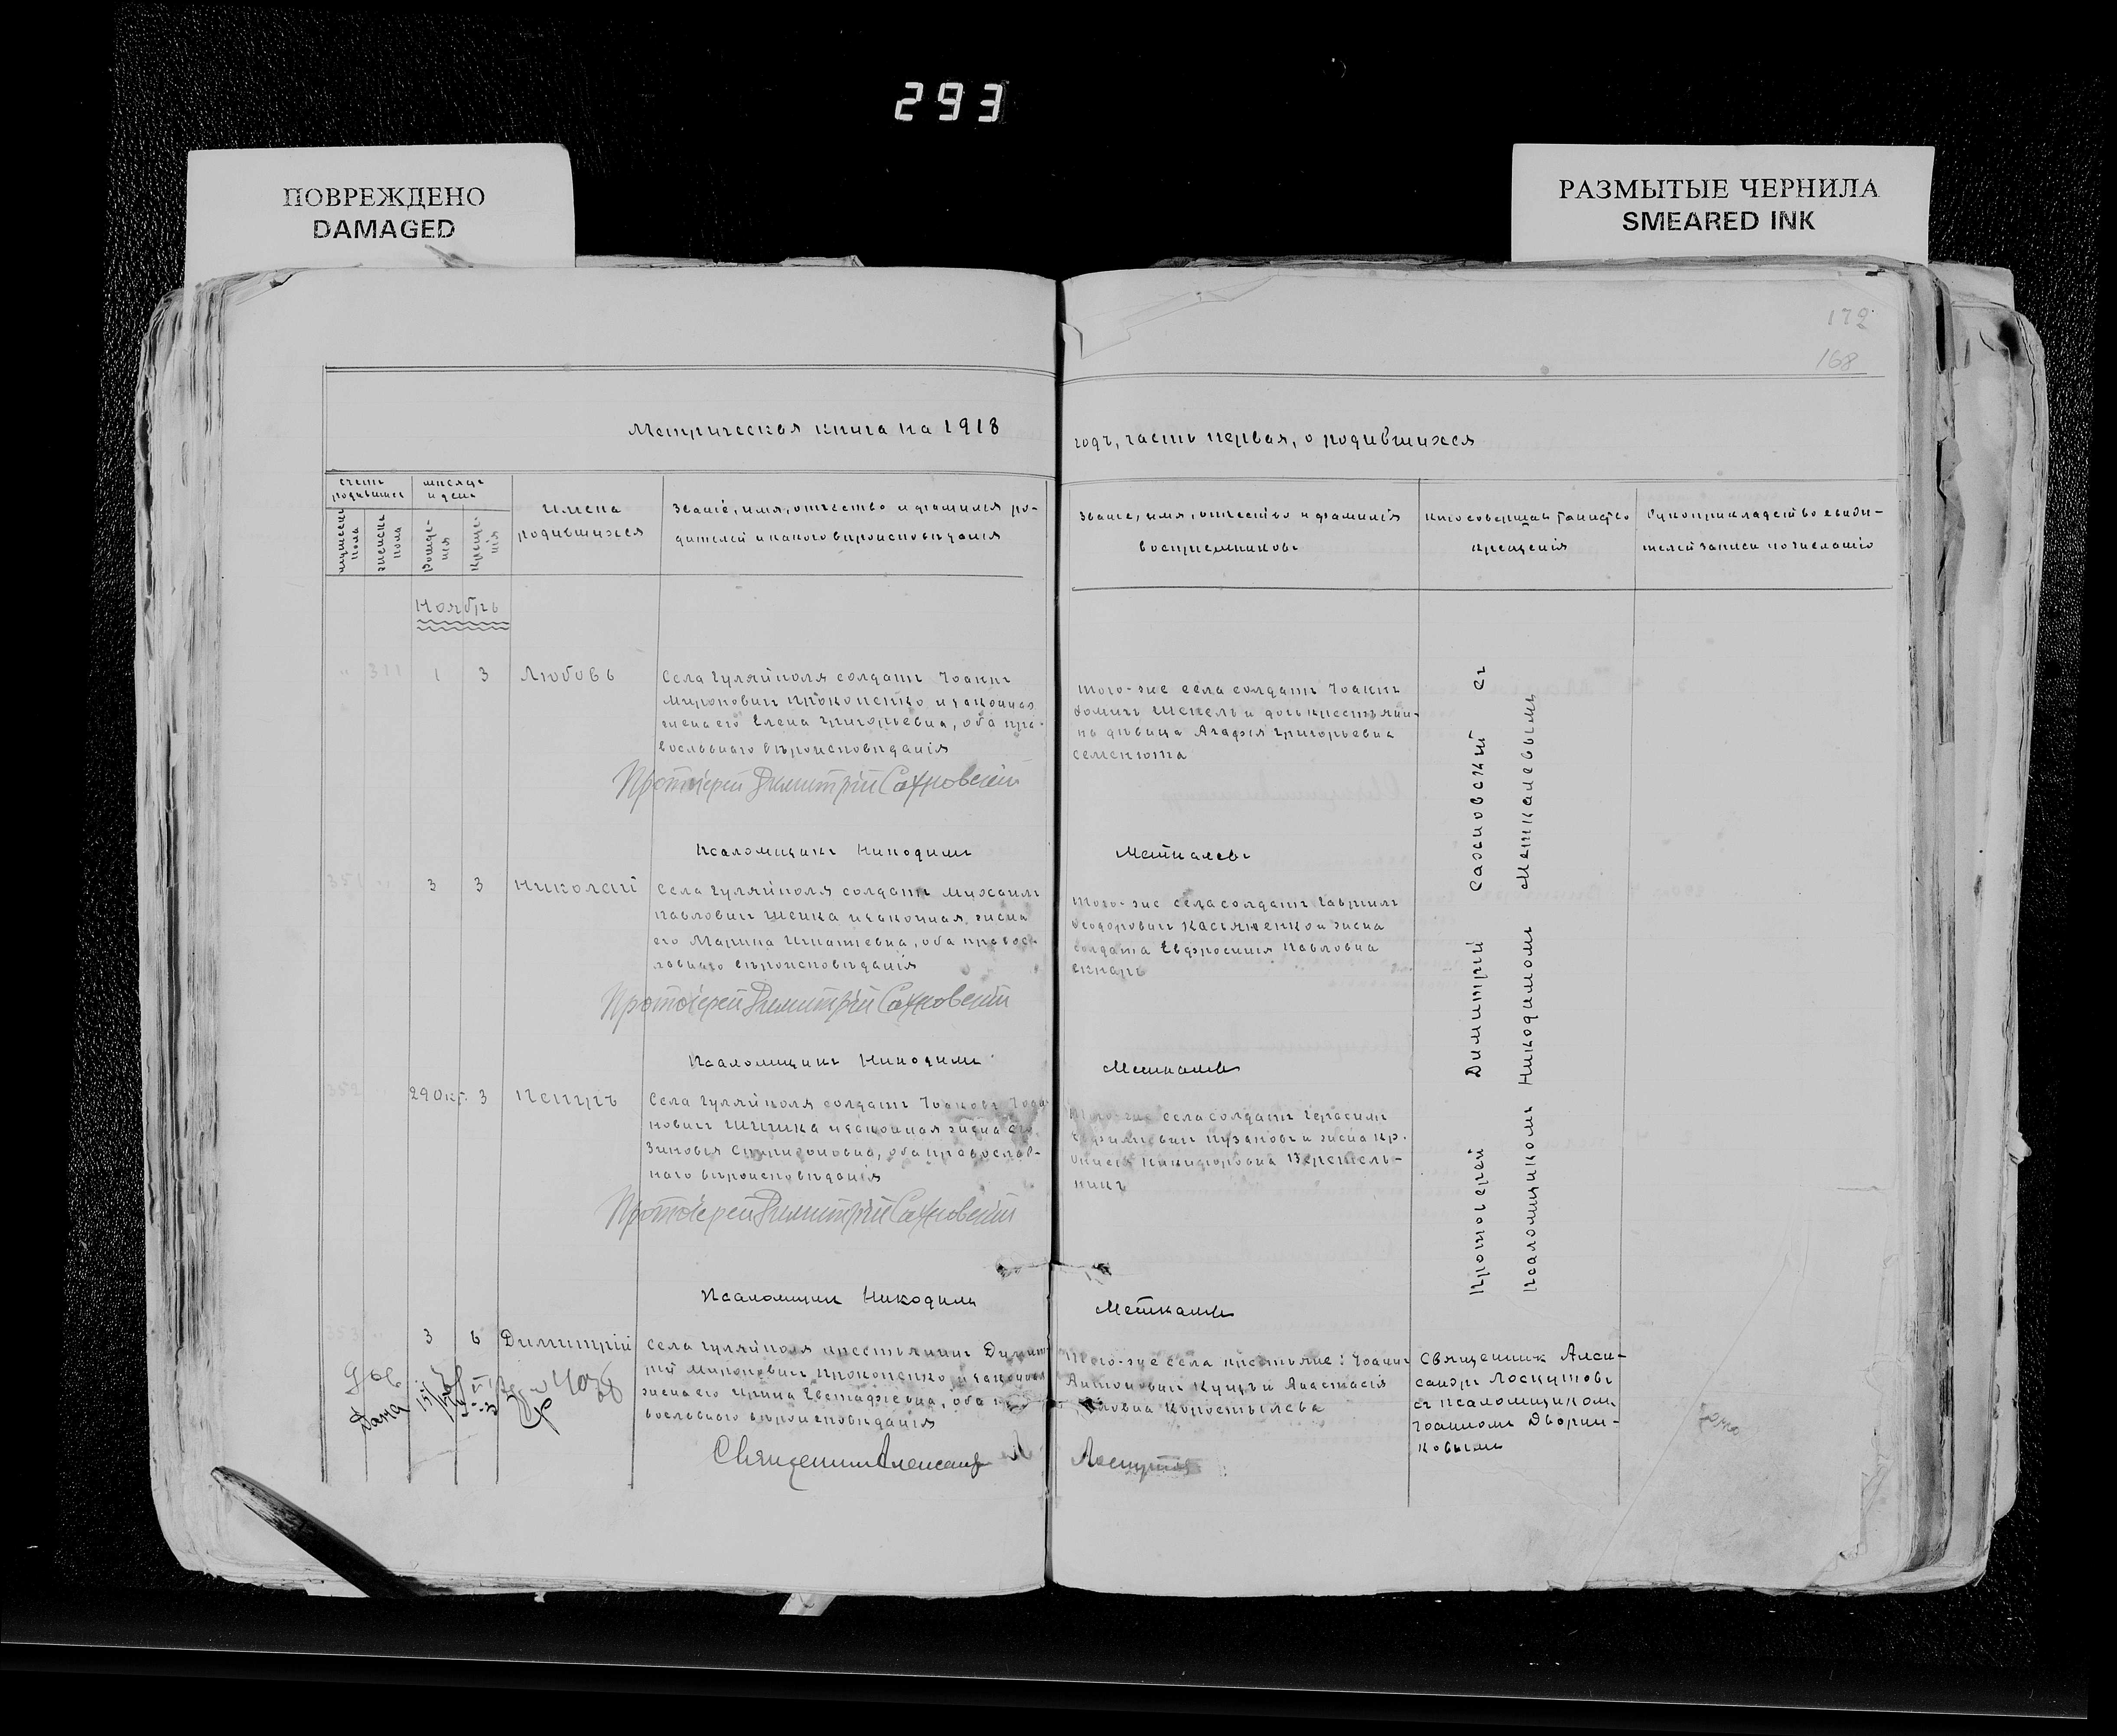 293
ПОВРЕЖДЕНО
DAMAGED
РАЗМЫТЫЕ ЧЕРНИЛА
SMEARED INK
172
168
Метрическая книга на 1918
годъ, часть первая, о родившихся
счетъ родившихся
мѣсяцъ и день
мужеска пола
женска пола
Рожденія
Крещенія
Имена
родившихся
Званіе, имя, отчество и фамилія ро-
дителей и какого вѣроисповѣданія
Званіе, имя, отчество и фамилія
воспріемниковъ
Кто совершалъ таинство
крещенія
Рукоприкладство свидѣ-
телей записи по желанію
Ноябрь
311
1
3
Любовь
Села Гуляйполя солдатъ Іоаннъ
Мироновичъ Прокопенко и законная
жена его Елена Григорьевна, оба пра-
вославнаго вѣроисповѣданія
того-же села солдатъ Іоаннъ
Шепель и дочь крестьяни-
на дѣвица Агафія Григорьевна
Семенюта
Протоіерей Димитрій Сахновскій
Псаломщикъ Никодимъ
Меткалевъ
351
3
3
Николай
Села Гуляйполя солдатъ Михаилъ
Павловичъ Шейка и законная жена
его Марина Игнатіевна, оба правос-
лавнаго вѣроисповѣданія
того-же села солдатъ Гавріилъ
Ѳеодоровичъ Касьяненко и жена
солдата Евфросинія Павловна
Скнарь
Протоіерей Димитрій Сахновскій
Псаломщикъ Никодимъ
Меткалевъ
352
29 Окт.
3
Петръ
Села Гуляйполя солдатъ Іоаковъ Іоа-
новичъ и законная жена его
Зиновія Спиридоновна, оба православ-
наго вѣроисповѣданія
того-же села солдатъ Герасимъ
Пузановъ и жена кр.
Никифоровна Веретель-
никъ
Протоіерей Димитрій Сахновскій
Псаломщикъ Никодимъ
Меткалевъ
Протоіерей Димитрій Сахновскій съ
Псаломщикомъ Никодимомъ Меткалевымъ
353
3
6
Димитрій
Села Гуляйполя крестьянинъ Димит-
рій Мироновичъ Прокопенко и законная
жена его Ирина Евстафіевна, оба пра-
вославнаго вѣроисповѣданія
Того-же села крестьяне: Іоаннъ
Антоновичъ Куцъ и Анастасія
Коростылева
Священникъ Алек-
сандръ Лоскутовъ
съ псаломщикомъ
Іоанномъ Дворни-
ковымъ
Священникъ Александръ
Лоскутовъ